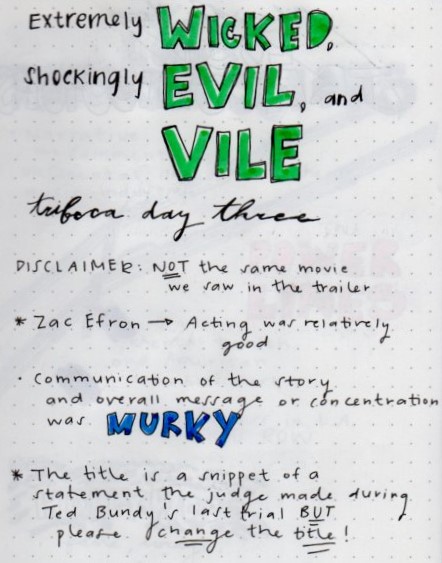 Extremely WICKED,
Shockingly EVIL, and
VILE
tribeca day three
DISCLAIMER: NOT the same movie
we saw in the trailer.
* Zac Efron → Acting was relatively
good
· Communication of the story
and overall message or concentration
was MURKY
* The title is a snippet of a
statement the judge made during
Ted Bundy's last trial BUT
please change the title!